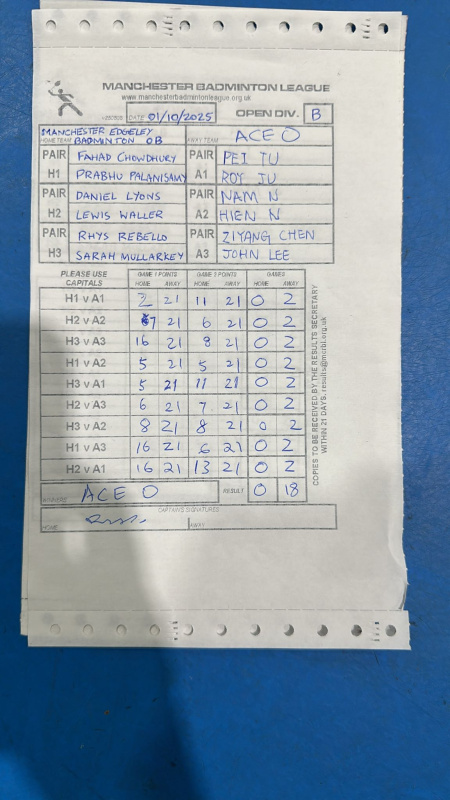 MANCHESTER BADMINTON LEAGUE
www.manchesterbadmintonleague.org.uk
DATE 01/10/2025 OPEN DIV. B
MANCHESTER EDGELEY
HOME TEAM BADMINTON OB AWAY TEAM ACE O
PAIR FAHAD CHOWDHURY PAIR PEI TU
H1 PRABHU PALANISAMY A1 ROY JU
PAIR DANIEL LYONS PAIR NAM N
H2 LEWIS WALLER A2 HIEN N
PAIR RHYS REBELLO PAIR ZIYANG CHEN
H3 SARAH MULLARKEY A3 JOHN LEE
PLEASE USE CAPITALS GAME 1 POINTS GAME 2 POINTS GAMES
HOME AWAY HOME AWAY HOME AWAY
H1 v A1 2 21 11 21 0 2
H2 v A2 7 21 6 21 0 2
H3 v A3 16 21 8 21 0 2
H1 v A2 5 21 5 21 0 2
H3 v A1 5 21 11 21 0 2
H2 v A3 6 21 7 21 0 2
H3 v A2 8 21 8 21 0 2
H1 v A3 16 21 6 21 0 2
H2 v A1 16 21 13 21 0 2
WINNERS ACE O RESULT 0 18
CAPTAIN'S SIGNATURES
HOME AWAY
COPIES TO BE RECEIVED BY THE RESULTS SECRETARY
WITHIN 21 DAYS. results@mcrbl.org.uk